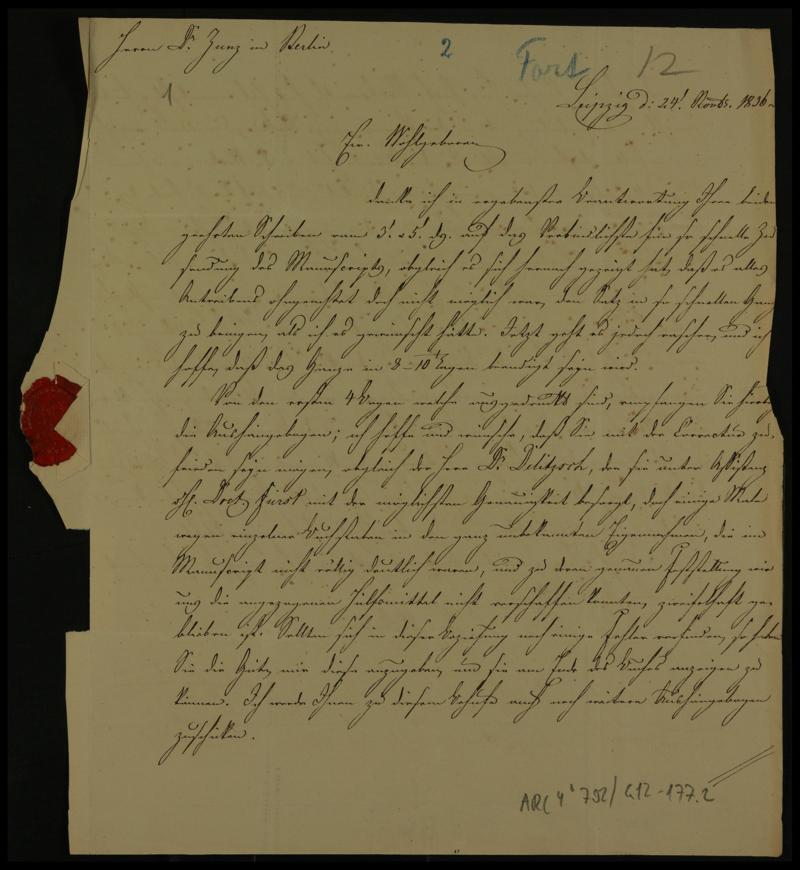 Herrn Dr. Zunz in Berlin.
2
Fort
12
1
Leipzig d: 24t. Novbr. 1836.
Ew. Wohlgeboren
danke ich in ergebenster Beantwortung Ihrer beiden
geehrten Schreiben vom 3t. & 5t. ds. auf das Verbindlichste für so schnelle Zu-
sendung des Manuscripts, obgleich es sich hernach gezeigt hat, daß es alles
Antreibens ohngeachtet doch nicht möglich war, den Satz in so schnellen Gang
zu bringen, als ich es gewünscht hätte. Jetzt geht es jedoch rascher, und ich
hoffe, daß das Ganze in 8–10 Tagen beendigt seyn wird.
Von den ersten 4 Bogen welche ausgedruckt sind, empfangen Sie hierbei
die Aushängebogen; ich hoffe und wünsche, daß Sie mit der Correctur zu-
frieden seyn mögen, obgleich der Herr Dr. Delitzsch, der sie unter Assistenz
des H. Doct. Fürst mit der möglichsten Genauigkeit besorgt, doch einige Male
wegen einzelner Buchstaben in den ganz unbekannten Eigennahmen, die im
Manuscript nicht völlig deutlich waren, und zu deren genauen Feststellung wir
uns die angezogenen Hülfsmittel nicht verschaffen konnten, zweifelhaft ge-
blieben ist. Sollten sich in dieser Beziehung noch einige Fehler vorfinden, so haben
Sie die Güte, mir diese anzugeben, um sie am Ende des Buches anzeigen zu
können. Ich werde Ihnen zu diesem Behufe auch noch weitere Aushängebogen
zuschicken.
ARC 4° 792/G12-177.2